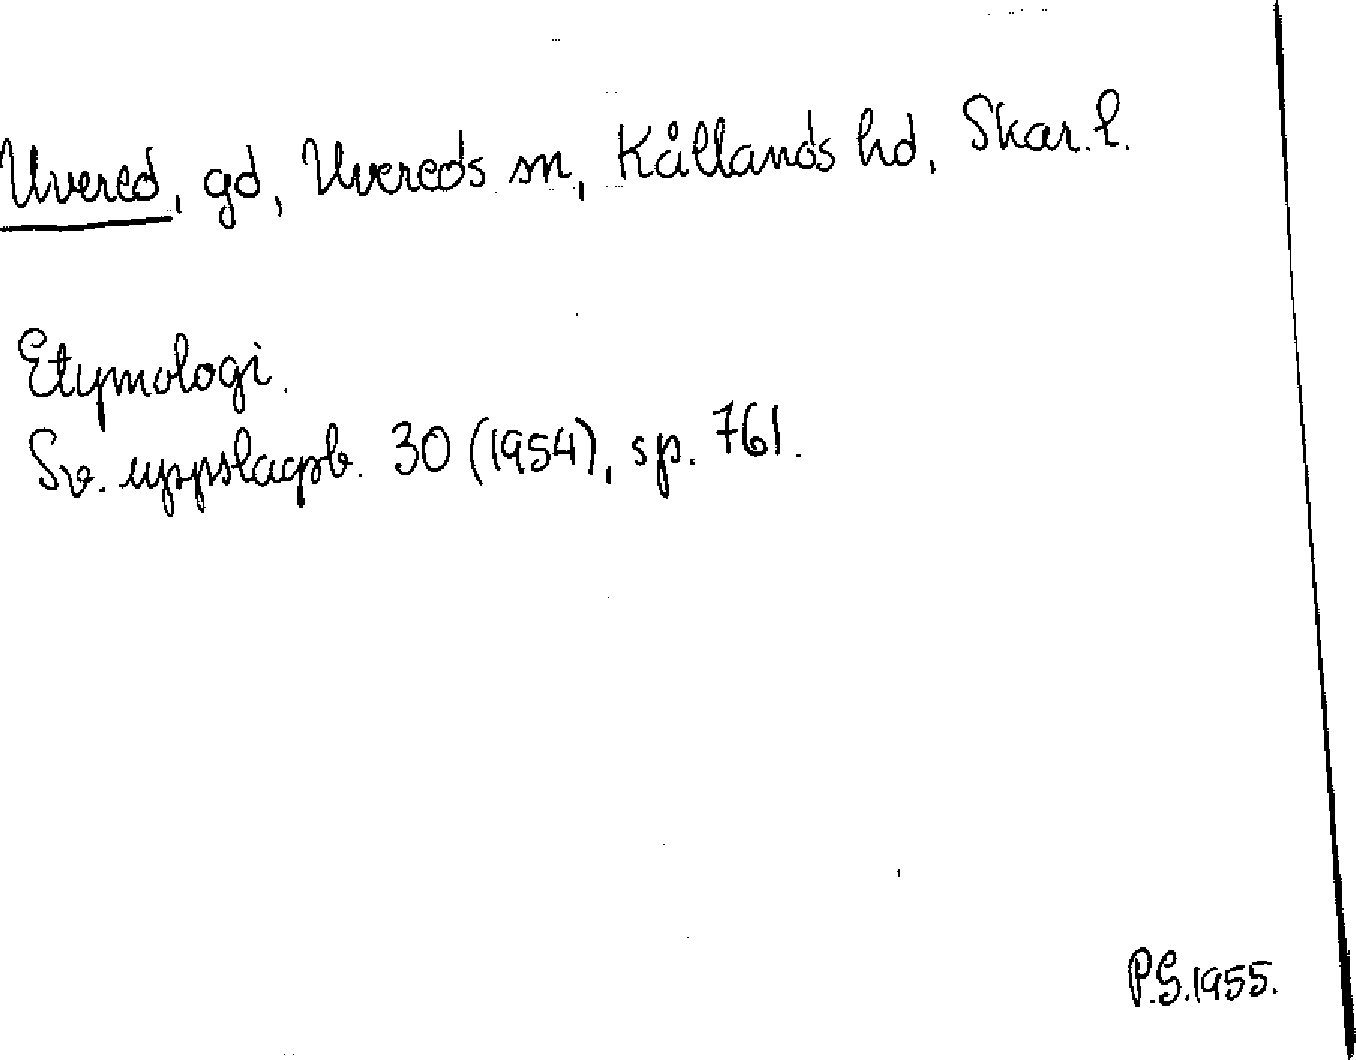 Uvered, gd, Uvereds sn, Kållands hd, Skar. l.
Etymologi.
Sv. uppslagsb. 30 (1954), sp. 761.
P.G. 1955.